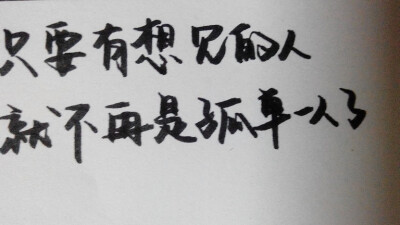 只要有想见的人
就不再是孤单一人了